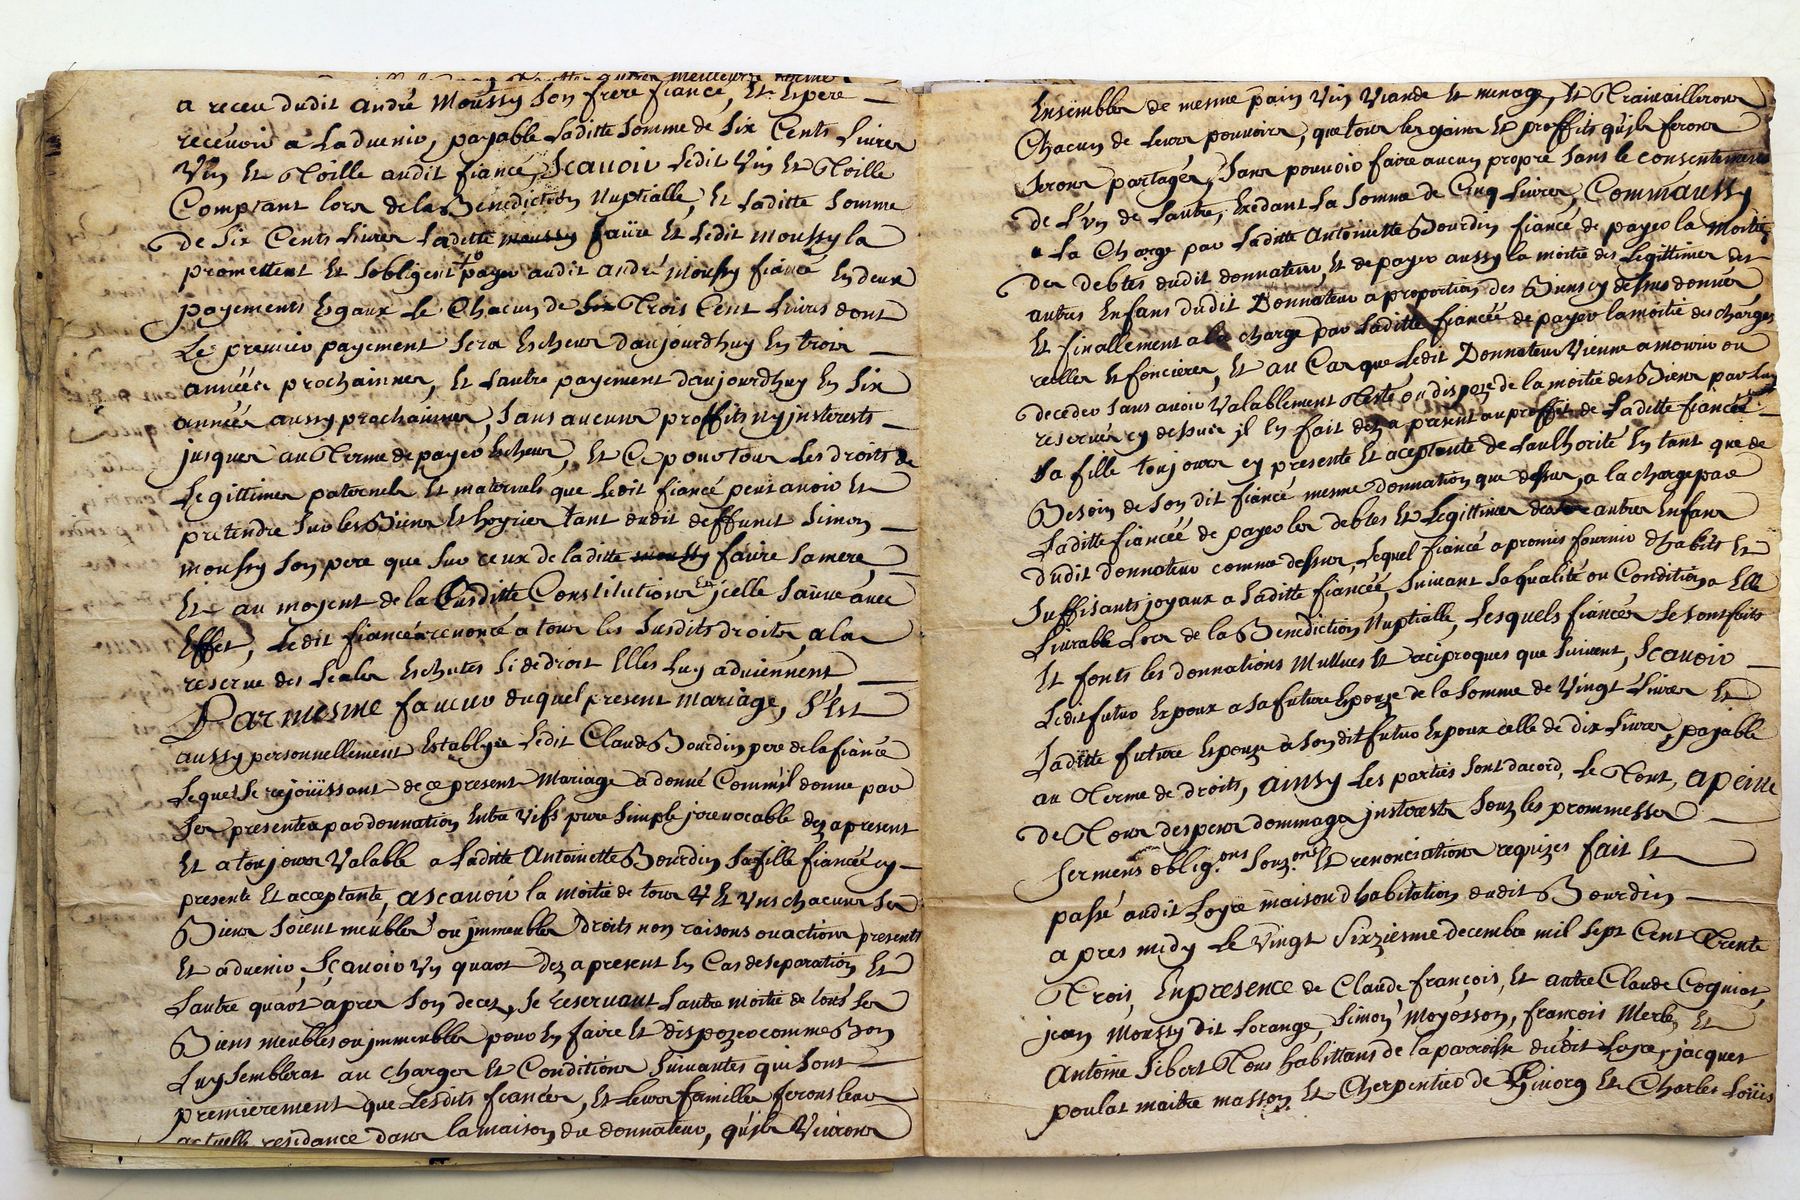 a receu dudit andré Moussy Son frere fiancé, Et Espere
recevoir a Ladvenir, payable Laditte Somme de Six Cents Livres
Vin Et Toille audit fiancé, Scavoir Ledit Vin Et Toille
Comptant lors de la Benediction Nuptialle, Et Laditte Somme
de Six Cents Livres Laditte moussy faure Et Ledit moussy la
promettent Et Sobligent payer audit andré Moussy fiancé En deux
payements Esgaux Le Chacun de Six Trois Cent Livres dont
Le premier payement Sera Escheus daujourdhuy En trois
années prochainnes, Et Lautre payement daujourdhuy En Six
années aussy prochainnes, Sans aucuns proffits ny jnterests
jusques au Terme de payer Escheus, Et Ce pour tous Les droits de
Legittimes paternels Et maternels que Ledit fiancé peut avoir Et
pretendre Sur les Biens Et hoyries tant dudit deffunct Simon
moussy Son pere que Sur ceux de laditte moussy faure Sa mere,
Et au moyent de la Susditte Constitution Et jcelle Sauve avec
Effet, Ledit fiancé a renoncé a tous les Susdits droits, a la
reserve des Leales Eschutes Si de droit Elles Luy adviennent
Par mesme faveur duquel present mariage, S'Est
aussy personnellement Establye Ledit Claude Bourdin pere de la fiancé
Lequel Se rejoüissant de ce present Mariage a donné Comm'il donne par
Ses presentes par donnation Entre Vifs pure Simple jrevocable dez a present
Et a toujours Valable a Laditte Antoinette Bourdin Sa fille fiancée cy
presente Et acceptante, ascavoir la moitie de tous Et Uns chacuns Ses
Biens Soient meubles ou jmmeubles Droits non raisons ou actions presents
Et advenir, Scavoir Un quart dez a present En Cas de separation Et
Lautre quart apres Son decez, Se reservant Lautre moitié de tous Ses
Biens meubles ou jmmeubles pour En faire Et dispozer comme Bon
Luy Semblerat au charges Et Conditions Suivantes qui Sont
premierement que Lesdits fiancés, Et Leurs familles ferons leur
actuelle residance dans la maison du donnateur, quils Vivrons
Ensembles de mesme pain Vin Viande Et menage, Et Travaillerons
Chacun de Leurs pouvoirs, que tous les gains Et proffits quils ferons
Serons partagés, Sans pouvoir faire aucun propre Sans le consentement
de L'Vn de Lautre, Exedant La Somme de Cinq Livres, Comm'aussy
a La Charge par Laditte Antoinette Bourdin fiancé de payer la Moitié
des debtes dudit donnateur, Et de payer aussy la moitie des Legittimes des
autres Enfans dudit Donnateur a proportion des Biens cy dessus donnés
Et finallement a la charge par Laditte fiancée de payer la moitié des charges
reelles Et foncieres, Et au Cas que Ledit Donnateur Vienne a mourir ou
deceder Sans avoir Valablement Testé ou dispozé de la moitié des Biens par luy
reservés cy dessus il En fait dez a present au proffit de Laditte fiancée
Sa fille toujours cy presente Et aceptante de Lauthorité En tant que de
Besoin de Son dit fiancé mesme donnation que dessus, a la charge par
Laditte fiancée de payer les debtes Et Legittimes des autres Enfans
dudit donnateur comme dessus, Lequel fiancé a promis fournir d'habits Et
Suffisants joyaux a Laditte fiancée, Suivant Sa qualité ou Condition a Elle
Livrable Lors de la Benediction Nuptialle, Lesquels fiancés Se sont faits
Et fonts les donnations Mutues Et reciproques que Suivent, Scavoir
Ledit futur Expoux a Sa future Espouze de la Somme de Vingt Livres Et
Laditte future Espouze a Son dit futur Expoux celle de dix Livres, payable
au Terme de droits, ainsy Les parties Sont dacord, Le Tout, a peine
de Tous despens dommages jnterests Souz les prommesses
Sermens oblig.ons Souz.ons Et renonciations requizes fait Et
passé audit Loyre maison d'habitation dudit Bourdin
apres midy Le Vingt Sixziesme decembre mil Sept Cent Trente
Trois, En presence de Claude françois, Et autre Claude Cogniat,
jean Moussy dit Lorange, Simon Moyosson, françois Merle, Et
Antoine Sibert Tous habittans de la parroisse dudit Loyre, jacques
poulat maitre masson, Et Cherpentier de Givors Et Charles Loüis